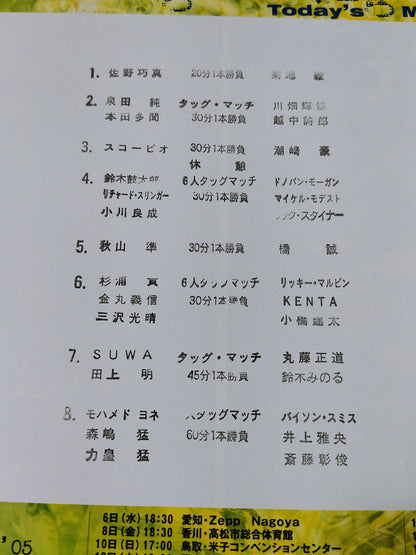 Today's 5 M
1. 佐野巧真 20分1本勝負 菊地 毅
2. 泉田 純 タッグ・マッチ 川畑輝鎮
本田多聞 30分1本勝負 越中詩郎
3. スコーピオ 30分1本勝負 潮﨑 豪
休 憩
4. 鈴木鼓太郎 6人タッグマッチ ドノバン・モーガン
リチャード・スリンガー 30分1本勝負 マイケル・モデスト
小川良成 ・スタイナー
5. 秋山 準 30分1本勝負 橋 誠
6. 杉浦 貴 6人タッグマッチ リッキー・マルビン
金丸義信 30分1本勝負 KENTA
三沢光晴 小橋建太
7. SUWA タッグ・マッチ 丸藤正道
田上 明 45分1本勝負 鈴木みのる
8. モハメド ヨネ 人タッグマッチ バイソン・スミス
森嶋 猛 60分1本勝負 井上雅央
力皇 猛 斎藤彰俊
6日(水)18:30 愛知・Zepp Nagoya
8日(金)18:30 香川・高松市総合体育館
'05 10日(日)17:00 鳥取・米子コンベンションセンター